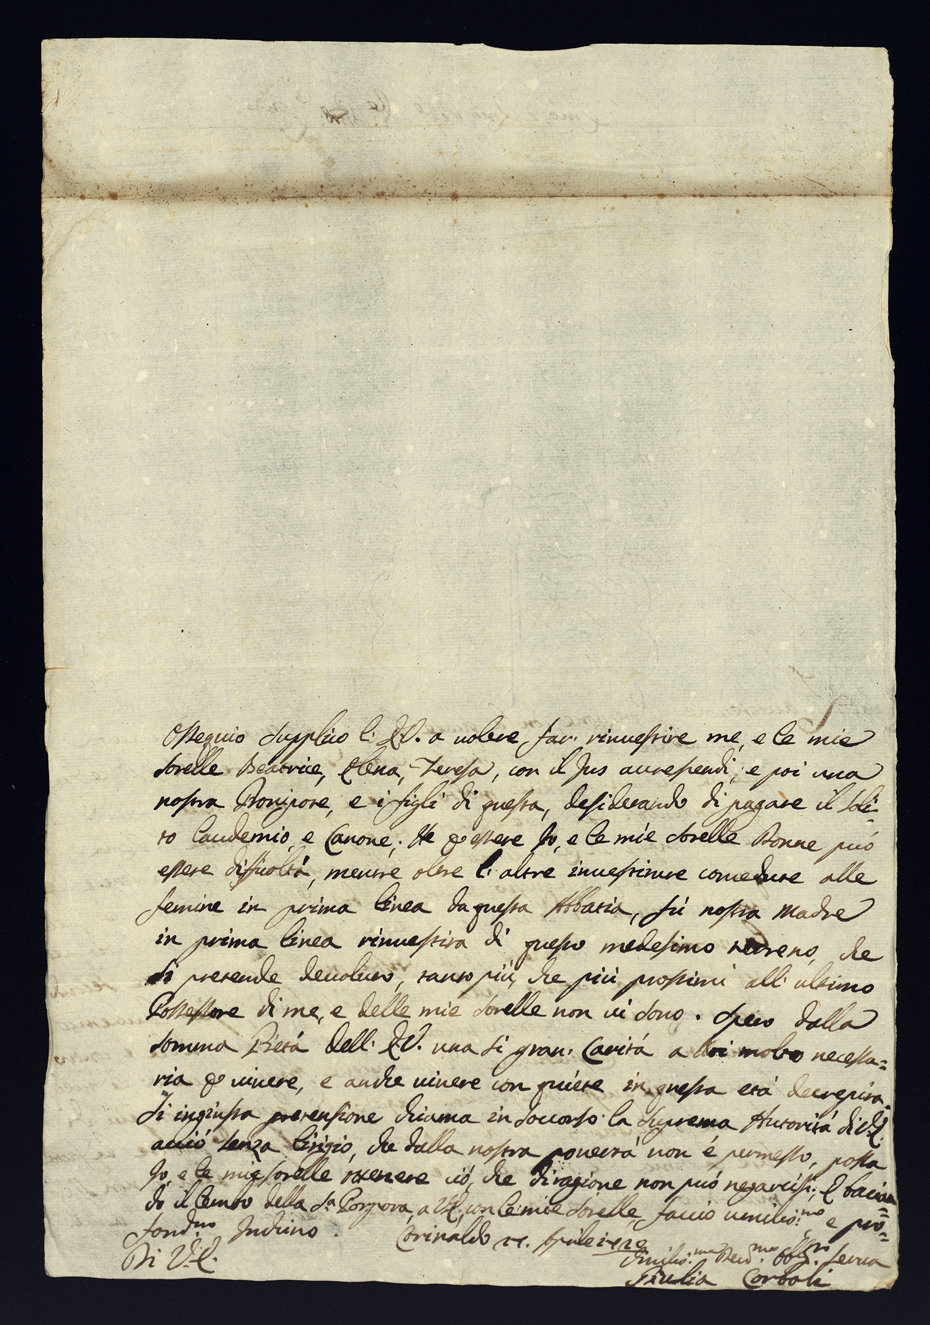 Ossequio supplico l'. E.V. a volere far rinvestire me, e le mie
sorelle Beatrice, Elena, Teresa, con il Jus accrescendi, e poi una
nostra Pronipote, e i figli di questa, desiderando di pagare il soli=
to laudemio, e Canone; Ne p essere Io, e le mie sorelle Donne può
essere difficoltà, mentre oltre l'. altre investiture concedute alle
femine in prima linea da questa Abbatia, fù nostra Madre
in prima linea rinvestita di questo medesimo terreno, che
si pretende devoluto, tanto più, che più prossimi all'. ultimo
Possessore di me, e delle mie sorelle non vi sono. Spero dalla
somma Pietà dell'. E.V. una si gran Carità a noi molto necessa=
ria p vivere, e anche vivere con quiete in questa età decrepita.
Si ingiusta pretensione chiama in soccorso la suprema Autorità di V.E.
acciò senza litigio, che dalla nostra povertà non è permesso, possa
Io, e le mie sorelle ottenere ciò, che di ragione non può negarcisi; E bacian=
do il Lembo della S.a Porpora a V.E., con le mie sorelle faccio umilis.mo e pro=
fond.mo Inchino. Corinaldo Aprile
Di V.E.
Umilis.ma Dev.ma Obl.ma Serva
Giulia Corboli